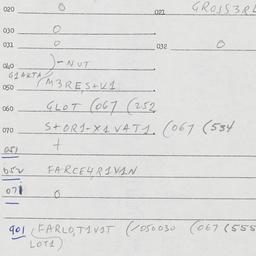 020 0 021 GROSS3RL
030 0
031 0 032 0
040 )-NUT
G1ARTA
050 (M3RES+K1
060 GLOT (067 (252
070 S+OR1-X1VAT1. (067 (534
051 +
052 FARCE4R1V1N
071 0
901 (FARLO,T1V1T (/050030 (067 (555
LOT1)